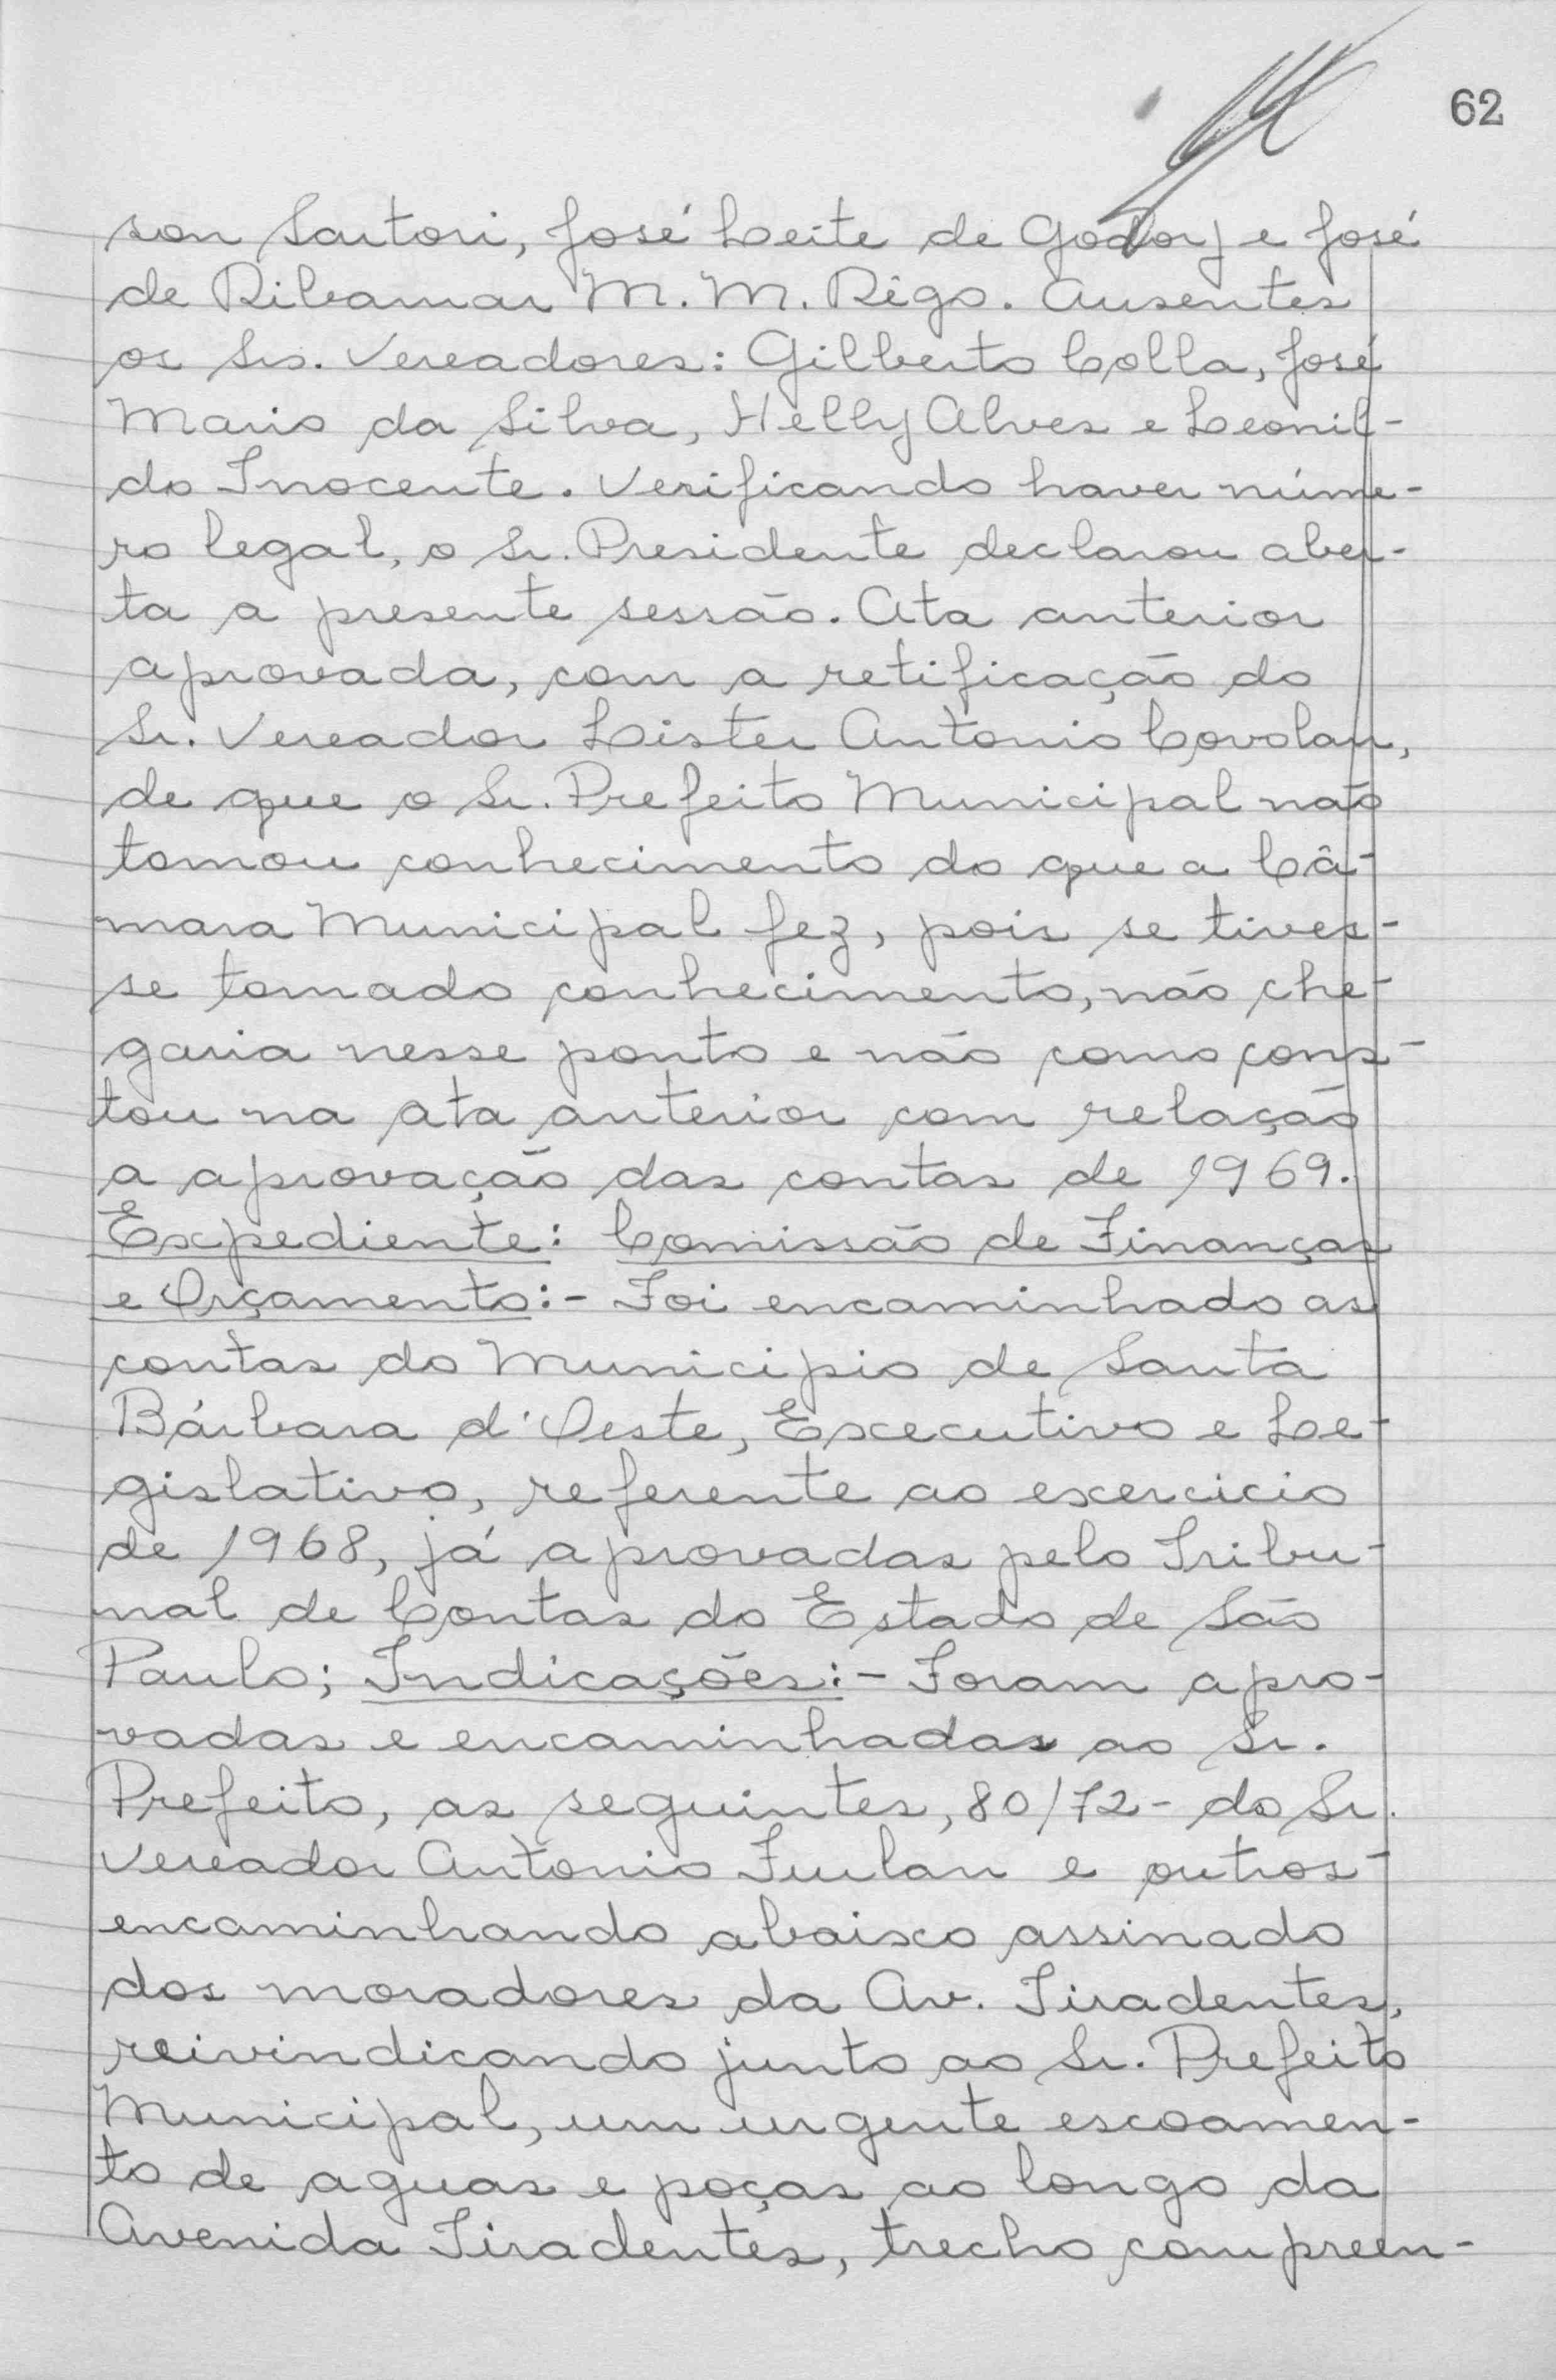 62
son Sartori, José Leite de Godoy e José
de Ribamar M. M. Rêgo. Ausentes
os Srs. Vereadores: Gilberto Colla, José
Mario da Silva, Helly Alves e Leonil-
do Inocente. Verificando haver núme-
ro legal, o Sr. Presidente declarou aber-
ta a presente sessão. Ata anterior
aprovada, com a retificação do
Sr. Vereador Lister Antonio Covolan,
de que o Sr. Prefeito Municipal não
tomou conhecimento do que a Câ-
mara Municipal fez, pois se tives-
se tomado conhecimento, não che-
garia nesse ponto e não como cons-
tou na ata anterior com relação
a aprovação das contas de 1969.
Expediente: Comissão de Finanças
e Orçamento:- Foi encaminhado as
contas do Municipio de Santa
Bárbara d'Oeste, Executivo e Le-
gislativo, referente ao exercicio
de 1968, já aprovadas pelo Tribu-
nal de Contas do Estado de São
Paulo; Indicações:- Foram apro-
vadas e encaminhadas ao Sr.
Prefeito, as seguintes, 80/72- do Sr.
Vereador Antonio Furlan e outros-
encaminhando abaixo assinado
dos moradores da Av. Tiradentes,
reivindicando junto ao Sr. Prefeito
Municipal, um urgente escoamen-
to de aguas e poças ao longo da
Avenida Tiradentes, trecho compreen-